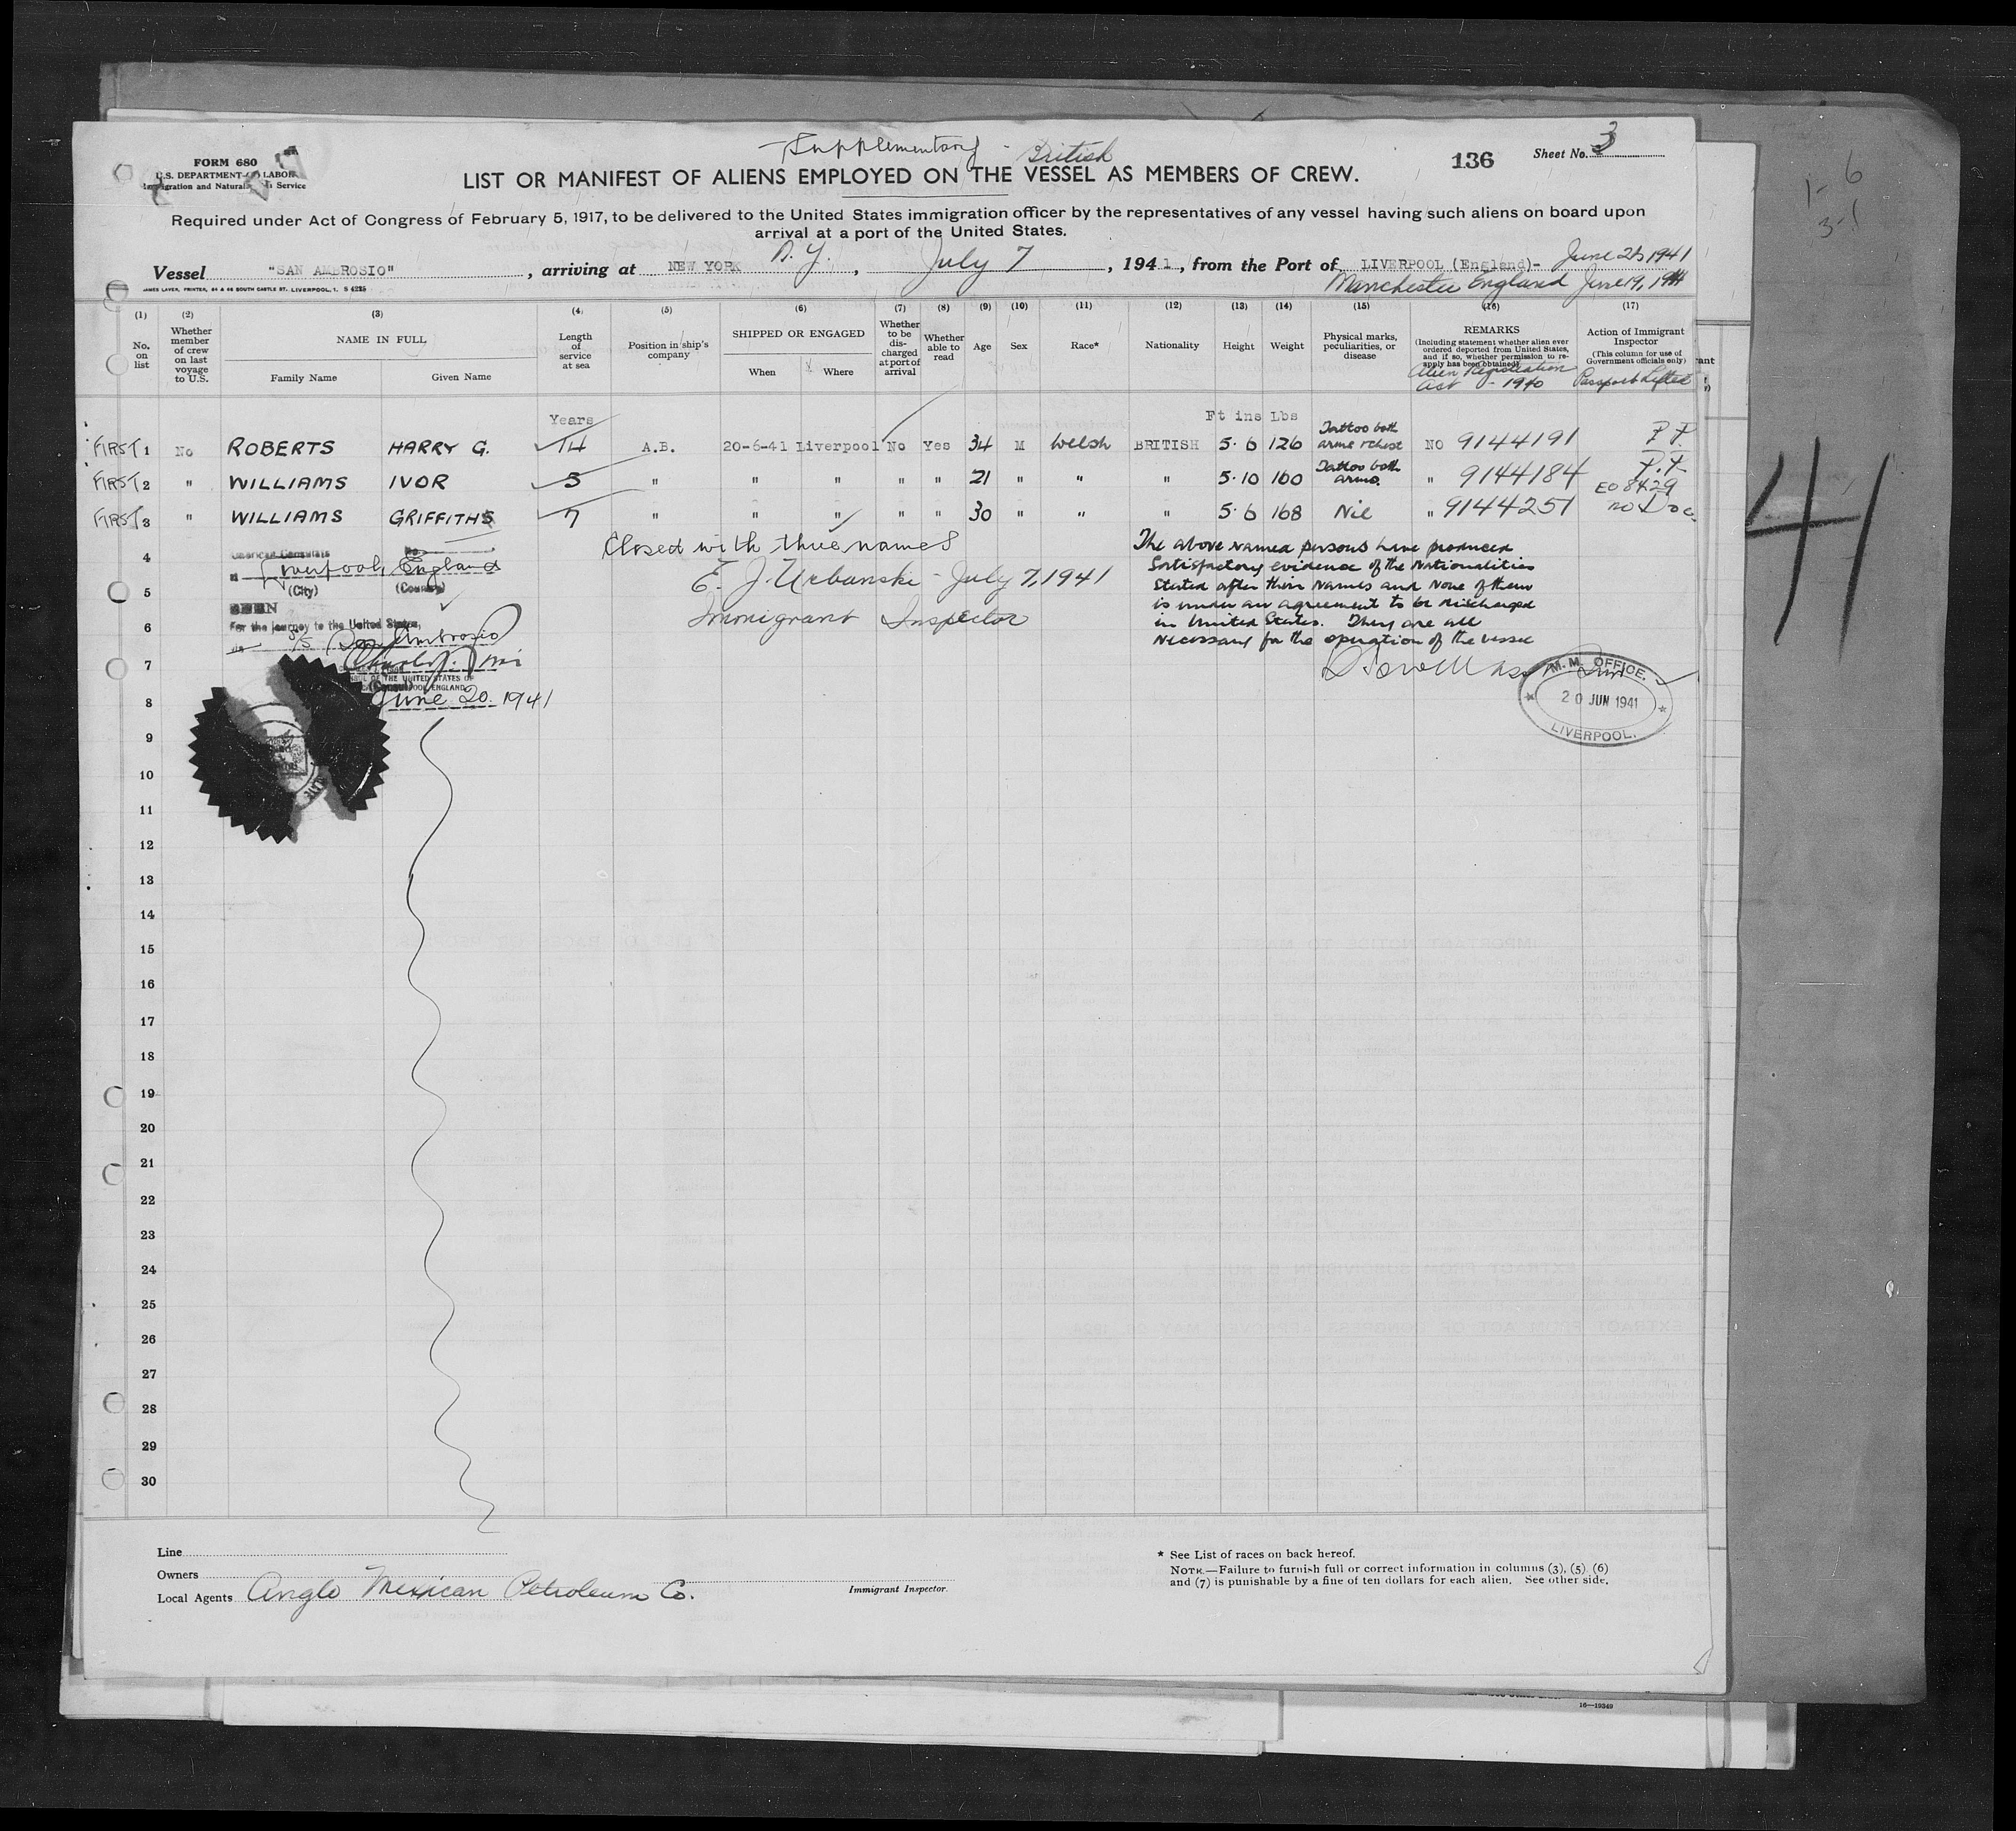 Supplementary - British
136
Sheet No. 3
FORM 680
U.S. DEPARTMENT OF LABOR
Immigration and Naturalization Service
LIST OR MANIFEST OF ALIENS EMPLOYED ON THE VESSEL AS MEMBERS OF CREW.
Required under Act of Congress of February 5, 1917, to be delivered to the United States immigration officer by the representatives of any vessel having such aliens on board upon
arrival at a port of the United States.
Vessel "SAN AMBROSIO", arriving at NEW YORK N.Y., July 7, 1941, from the Port of LIVERPOOL (England)- June 1941
Manchester England June 19, 1941
JAMES LAVER, PRINTER, 64 & 66 SOUTH CASTLE ST. LIVERPOOL, 1. S 4235
(1) (2) (3) (4) (5) (6) (7) (8) (9) (10) (11) (12) (13) (14) (15) (16) (17)
No. on list
Whether member of crew on last voyage to U.S.
NAME IN FULL
Family Name
Given Name
Length of service at sea
Position in ship's company
SHIPPED OR ENGAGED
When
Where
Whether to be discharged at port of arrival
Whether able to read
Age
Sex
Race*
Nationality
Height
Weight
Physical marks, peculiarities, or disease
REMARKS
(Including statement whether alien ever ordered deported from United States, and if so, whether permission to re-apply has been obtained)
Alien Registration Act - 1940
Action of Immigrant Inspector
(This column for use of Government officials only)
Passport Lifted
Years
Ft ins Lbs
FIRST 1 No ROBERTS HARRY G. 14 A.B. 20-6-41 Liverpool No Yes 34 M Welsh BRITISH 5·6 126 Tattoo both arms & chest NO 9144191 P.P.
FIRST 2 " WILLIAMS IVOR 5 " " " " " 21 " " " 5·10 160 Tattoo both arms. " 9144184 P.P.
FIRST 3 " WILLIAMS GRIFFITHS 7 " " " " " 30 " " " 5·6 168 Nil " 9144251 EO 8429 no Doc.
4
5
6
7
8
9
10
11
12
13
14
15
16
17
18
19
20
21
22
23
24
25
26
27
28
29
30
Closed with three names
E. J. Urbanski - July 7, 1941
Immigrant Inspector
The above named persons have produced
Satisfactory evidence of the Nationalities
Stated after their names and none of them
is under an agreement to be discharged
in United States. They are all
necessary for the operation of the vessel
M.M. OFFICE.
20 JUN 1941
LIVERPOOL.
American Consulate
No
at Liverpool, England
(City) (Country)
SEEN
For the journey to the United States,
S/S San Ambrosio
OF THE UNITED STATES OF
(Consul)
June 20. 1941
Line
Owners
Local Agents Anglo Mexican Petroleum Co.
Immigrant Inspector.
* See List of races on back hereof.
NOTE.—Failure to furnish full or correct information in columns (3), (5) (6)
and (7) is punishable by a fine of ten dollars for each alien. See other side.
16—19349
1- 6
3-1
41